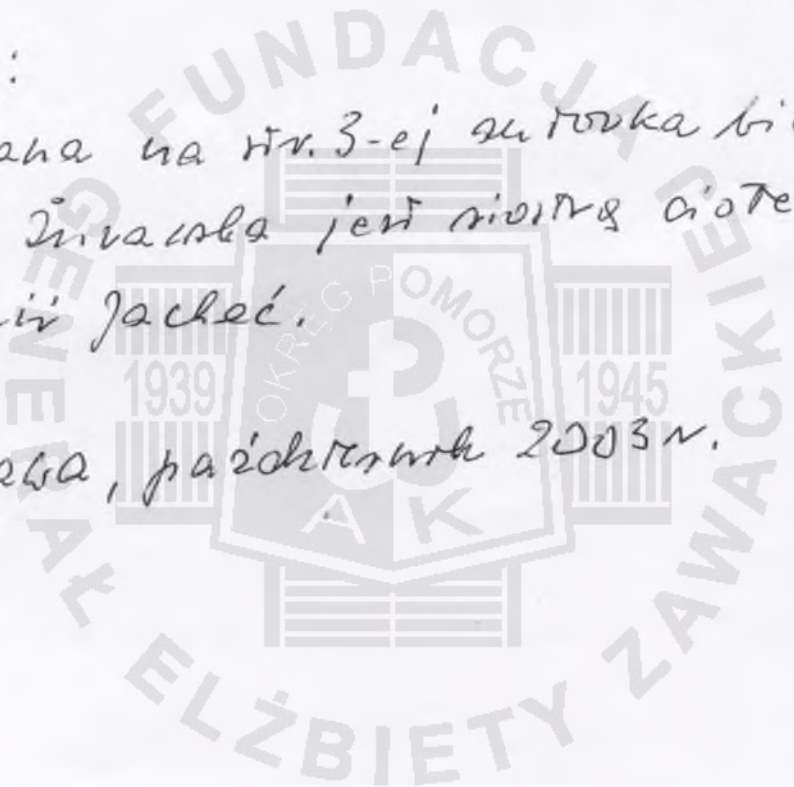 :
ana na str. 3-ej autorka bi
Żurawska jest siostrą ciote
Jacheć.
październik 2003 r.
FUNDACJA GENERAŁ ELŻBIETY ZAWACKIEJ
OKRĘG POMORZE
1939 1945
AK